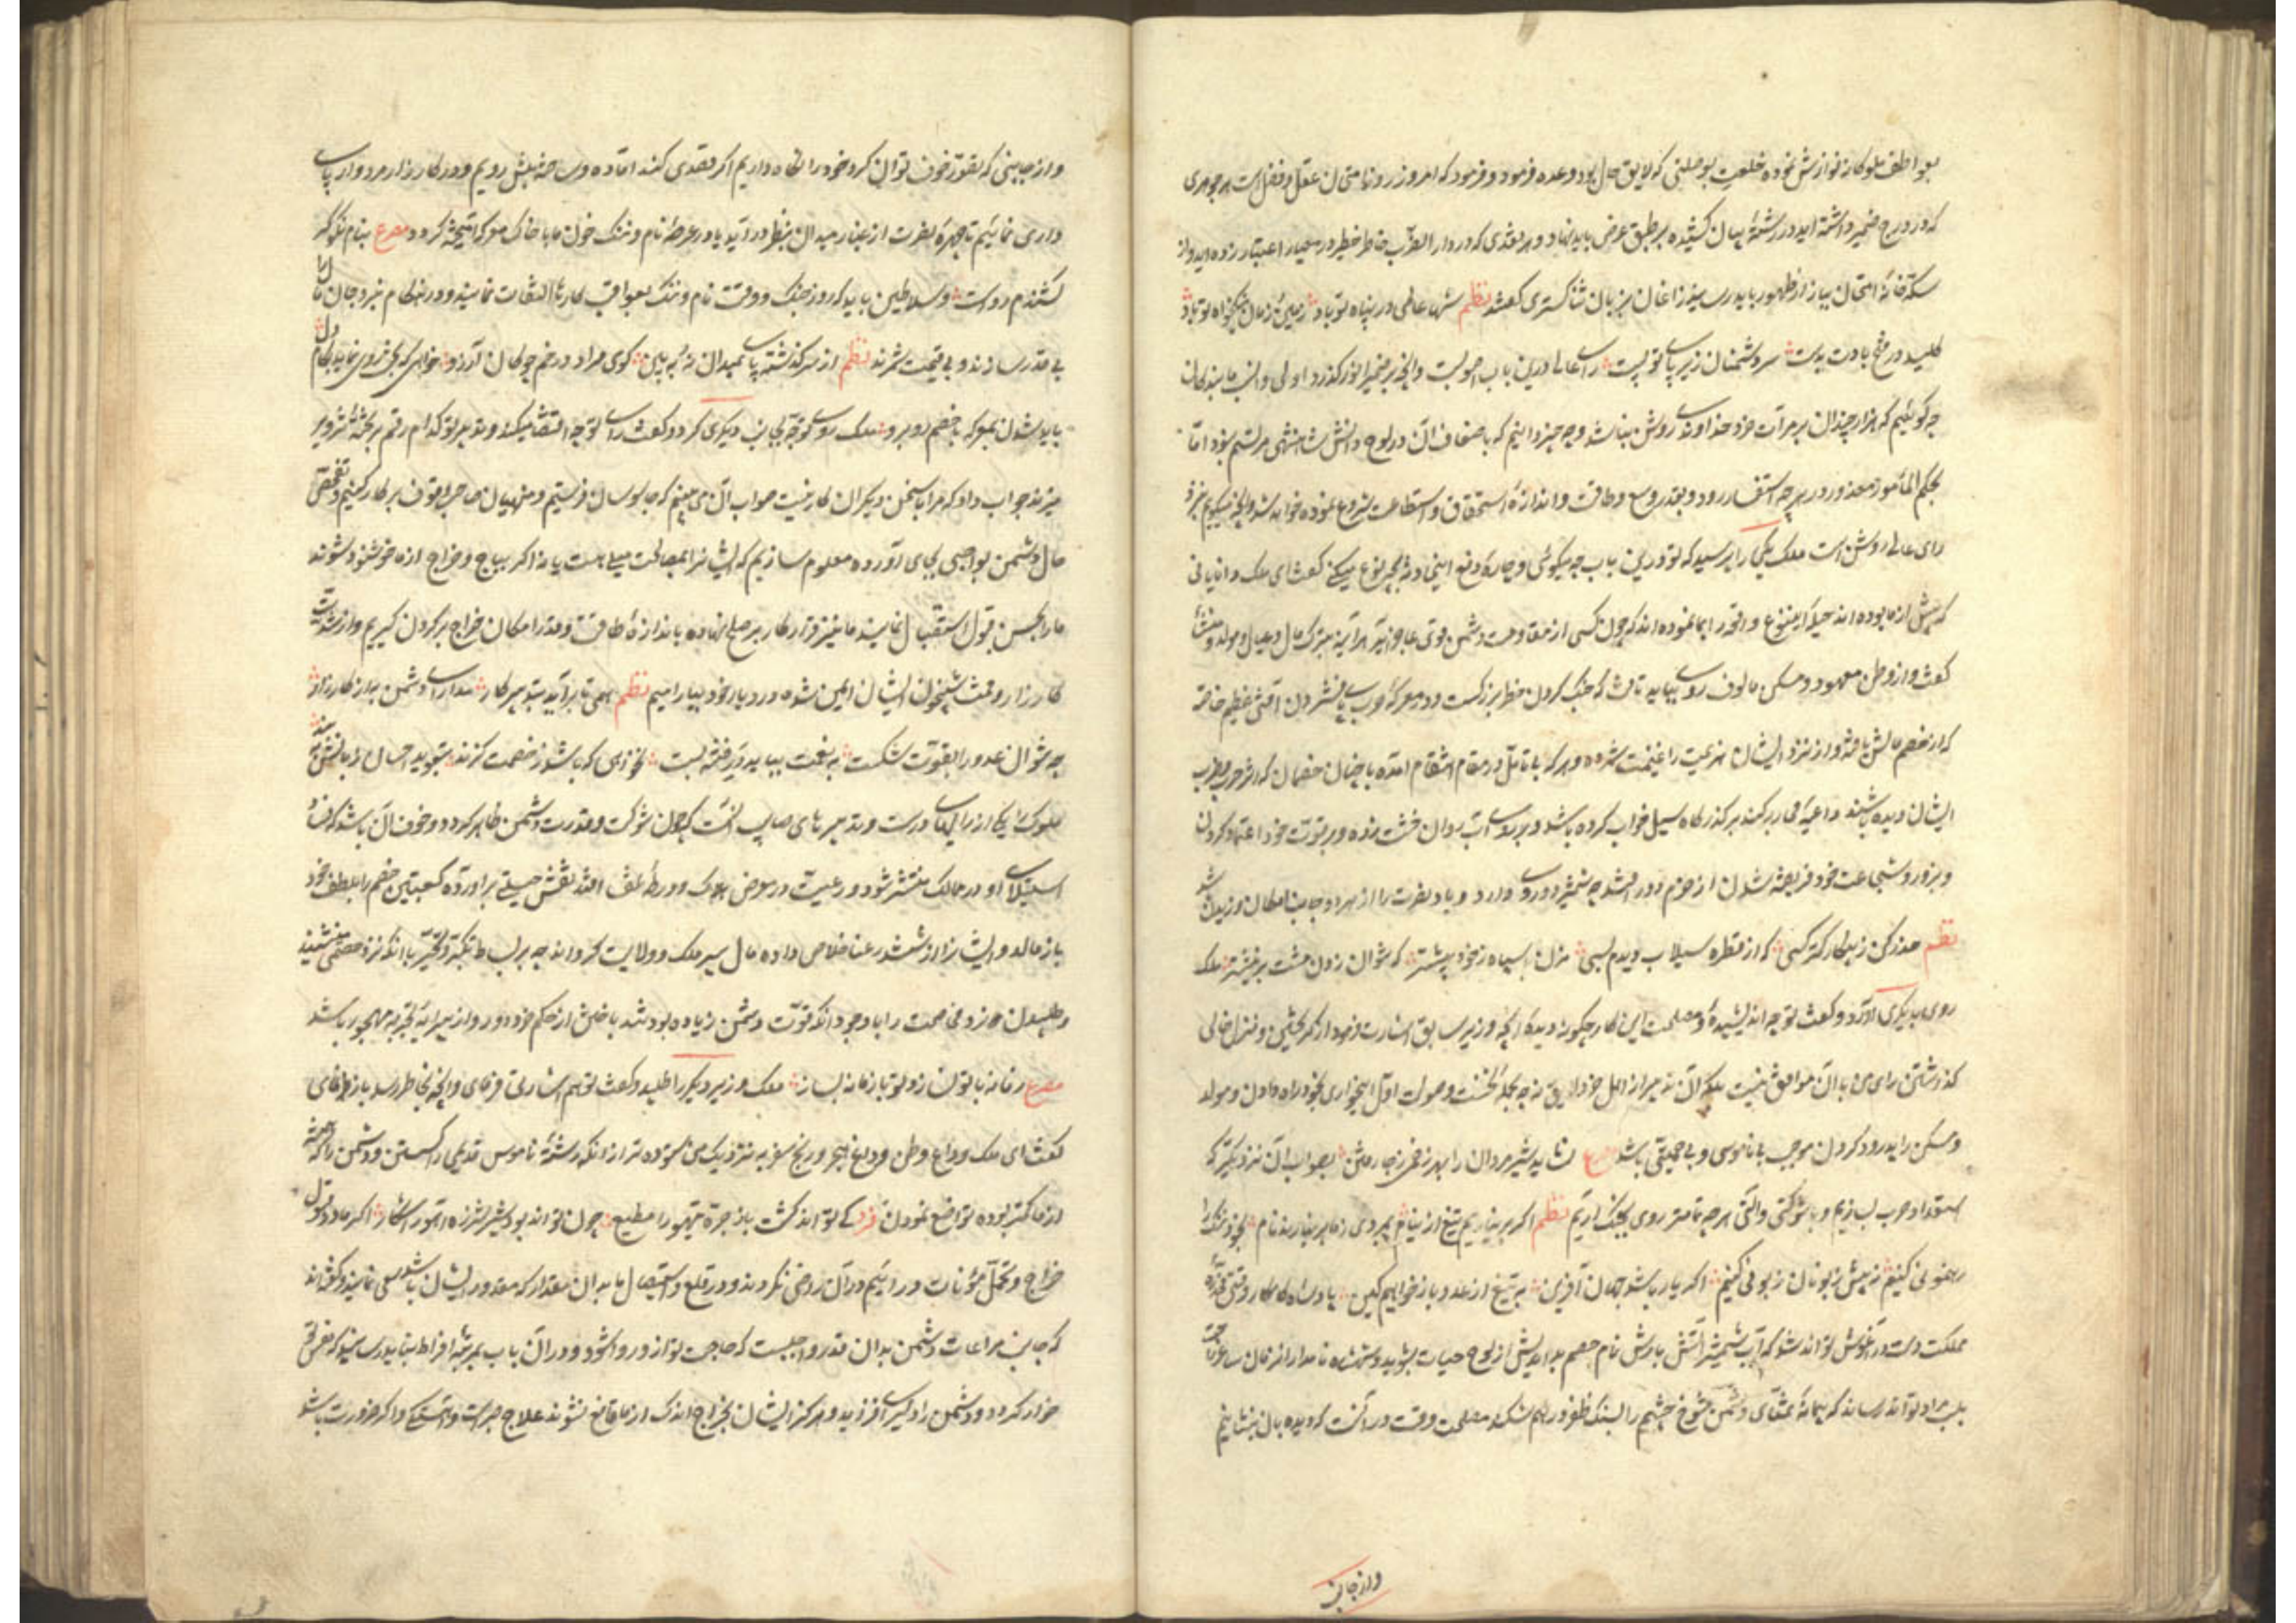 بعواطف ملوکانه نوازش نموده خلعت بوصلتی که لایق حال بود وعده فرمود و فرمود که امروز روز امتحان عقل و فضل است هر جوهری
که در درج ضمیر داشته اید در رشتهٔ بیان کشیده بر طبق عرض باید نهاد و هر نقدی که در دار الضرب خاطر خطیر در معیار اعتبار زده اید و از
سکه خانهٔ امتحان بباز از ظهور باید رسانید زاغان بزبان ثنا گستری گفتند نظم شها عالمی در پناه تو باد زمین و زمان نیکخواه تو باد
کلید در فتح بادت بدست سر دشمنان زیر پای تو پست رای عالی درین باب اصوبست و آنچه بر ضمیر انور گذرد اولی و انسب ما بندگان
چه گوئیم که هزار چندان بر مرآت خرد خداوندی روشن نباشد و چه چیز دانیم که باضعاف آن در لوح دانش شاهنشهی مرتسم نبود اما
بحکم المأمور معذور در هر چه استفسار رود و بقدر وسع و طاقت و اندازهٔ استحقاق و استطاعت شروع نموده خواهد شد و آنچه میگویم بر
رای عالی روشن است ملک یکی را پرسید که تو درین باب چه میگوئی و چاره دفع این حادثه بچه نوع میکنی گفت ای ملک دانایانی
که پیش از ما بوده اند حیله این نوع واقعه را ایما نموده اند که چون کسی از مقاومت دشمن قوی عاجز آید هر آینه بترک مال و عیال و مولد و منشأ
گفت و از وطن معهود و مسکن مالوف روی بتابد چه جنگ کردن خطر بزرگست و در معرکهٔ حرب پای فشردن آفتی عظیم خاصه
که از خصم مالش یافته و از نزد ایشان هزیمت را غنیمت شمرده و هر که بی تامل در مقام انتقام آمده با چنان خصمان که اثر حرب و ضرب
ایشان دیده باشند داعیه مجاربه کند بر گذرگاه سیل خواب کرده باشد و بر روی آب روان خشت زده و بر قوت خود اعتماد کردن
و بزور و شجاعت خود فریفته شدن از حزم دور افتد چه شمشیر دو روی دارد و باد نصرت را از هر دو جانب امکان وزیدن باشد
نظم حذر کن ز پیکار کمتر کسی که از قطره سیلاب دیدم بسی مزن بر سپاه ز خود بیشتر که نتوان زدن مشت بر نیشتر ملک
روی بدیگری آورد و گفت تو چه اندیشیدهٔ و مصلحت این کار چگونه دیدهٔ آنچه وزیر سابق اشارت فرمود از گریختن و منزل خالی
گذاشتن رای من با آن موافق نیست بلکه آن تدبیر از اهل خرد لایق نه چه بحملهٔ نخست و صولت اول این خواری بخود راه دادن و مولد
و مسکن را پدرود کردن موجب بی ناموسی و بی حمیتی باشد مصرع نشاید شیرمردان را بهر زخمی ز جا رفتن بصواب آن نزدیکتر که
استعداد حرب سازیم و با شوکتی و آلتی هر چه تمامتر روی بجنگ آریم نظم اگر بر نیاریم تیغ از نیام بمردی ز ما بر نیارند نام بخون رنگ
رهنمونی کنیم نه پیش زبونان زبونی کنیم اگر یار باشد جهان آفرین بر تیغ از عدو باز خواهیم کین پادشاه کامکار وقتی
مملکت دست در آغوش تواند شد که آب شمشیر آتش بارش نام خصم بداندیش از لوح حیات بشوید و شهنشاه نامدار از زمان ساغر
بلب مراد تواند رساند که پیمانهٔ عشقای دشمن شوخ چشم را بسنگ ظفر در هم شکند مصلحت وقت در آنست که دیده بان بنشانیم
و از جانب
و از جانبی که بقوت خوف توان کرد خود را نگاه داریم اگر قصدی کنند آماده و ساخته پیش رویم و در کارزار مردوار پای
داری نمائیم تا چهرهٔ نصرت از غبار میدان بنظر در آید یا در عرضهٔ نام و ننگ خون ما با خاک معرکه آمیخته گردد مصرع بنام نکو گر
کشندم رواست و سلاطین باید که روز جنگ و وقت نام و ننگ بعواقب کارها التفات ننمایند و در هنگام نبرد جان و مال را
بی قدر سازند و بی قیمت شمرند نظم از سر گذشته پای بمیدان نه و ببین گوی مراد در خم چوگان آرزو خواهی که بخت روی نماید بکام دل
باید شدن بمعرکه با خصم روبرو ملک روی توجه بجانب دیگری کرد و گفت رای تو چه اقتضا میکند و تدبیر تو کدام رقم بر تختهٔ تزویر
میزند جواب داد که مرا با سخن دیگران کار نیست صواب آن می بینم که جاسوسان فرستیم و منهیان صاحب وقوف بر کار کنیم و تفحص
حال دشمن بواجبی بجای آورده معلوم سازیم که ایشانرا بمصالحت میلی هست یا نه اگر بباج و خراج از ما خوشنود شوند
ما را بحسن قبول استقبال نمایند ما نیز قرار کار بر صلح نهاده باندازهٔ طاقت و قدر امکان خراج بر گردن گیریم و از شدت
کارزار و وقت شبیخون ایشان ایمن شده در دیار خود بیارامیم نظم همی تا بر آید بتدبیر کار مدارای دشمن به از کارزار
چو نتوان عدو را بقوت شکست بنعمت بباید در فتنه بست گر اندیشه باشد ز خصمت گزند بتعویذ احسان زبانش ببند
ملوک را یکی از رایهای درست و تدبیرهای صایب آنست که چون شوکت و قدرت دشمن ظاهر گردد و خوف آن باشد که فساد
استیلای او در ممالک منتشر شود و رعیت در معرض هلاک و ورطهٔ تلف افتد نقش حیلتی بر آورده کعبتین خصم را بلطف خود
باز مالد و ایشانرا از ششدر عنا خلاص داده مال سپر ملک و ولایت گرداند چه بر بساط تکبر و تحیر با آنکه نزد خصمی نشیند
و طپیدن و زدن مخاصمت را با وجود آنکه قوت دشمن زیاده بود شد باختن از حکم خرد دور و از پیرایهٔ تجربه مهجور باشد
مصرع زمانه با تو نسازد تو با زمانه بساز ملک وزیر دیگر را طلبید و گفت تو هم اشارتی فرمای و آنچه بخاطر رسد باز نمای
گفت ای ملک وداع وطن و داغ هجر و رنج سفر به نزدیک من ستوده تر از آنکه رشتهٔ ناموس قدیمی را گسستن و دشمن را که همیشه
از ما کمتر بوده تواضع نمودن فرد کی تواند گشت باز جره تیهو را مطیع چون تواند بود شیر شرزه آهو را شکار اگر ما در قبول
خراج و تحمل مؤنات در آئیم در آن راضی نگردند و در قلع و استیصال ما بدان مقدار که مقدور ایشان باشد سعی نمایند و گفته اند
که جانب مراعات دشمن بدان قدر واجبست که حاجت تو از و روا شود و در آن باب بمرتبهٔ افراط نباید رسانید که نفس تو
خوار گردد و دشمن را دلیری افزاید و هرگز ایشان بخراج اندک از ما قانع نشوند علاج صبر است و آهستگی و اگر ضرورت باشد